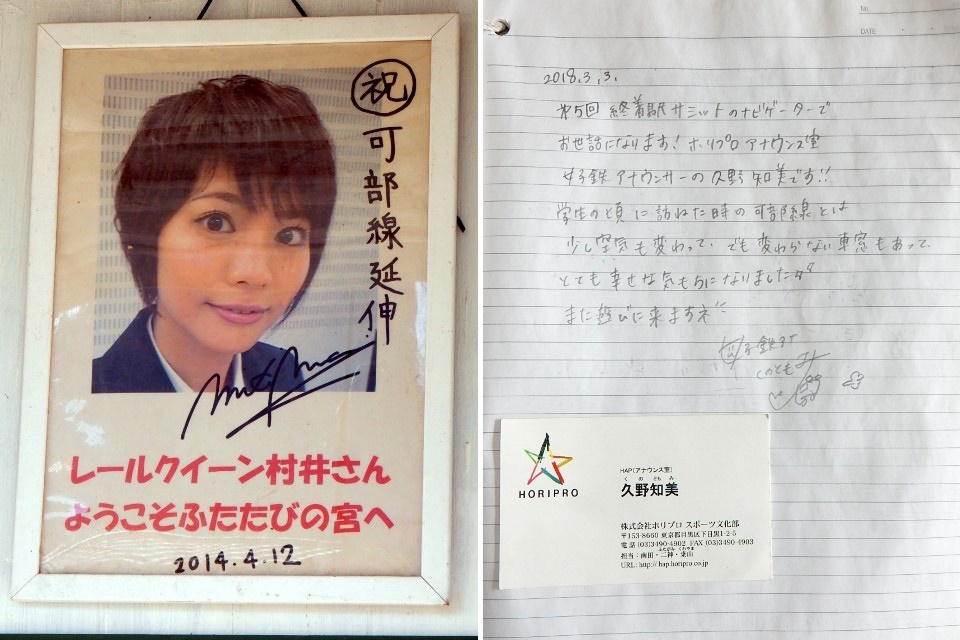 祝
可部線延伸
レールクイーン村井さん
ようこそふたたびの宮へ
2014.4.12
No.
DATE
2018.3.3.
第5回 終着駅サミットのナビゲーターで
お世話になります! ホリプロ アナウンス室
女子鉄アナウンサーの久野知美です!!
学生の頃に訪ねた時の可部線とは
少し空気も変わって、でも変わらない車窓もあって、
とても幸せな気もちになりました
また遊びに来ますネ
女子鉄アナ
くのともみ
HORIPRO
HAP(アナウンス室)
く の とも み
久野知美
株式会社ホリプロ スポーツ文化部
〒153-8660 東京都目黒区下目黒1-2-5
電話 (03)3490-4902 FAX (03)3490-4903
ふたがみ くれやま
担当:南田・二神・東山
URL: http://hap.horipro.co.jp